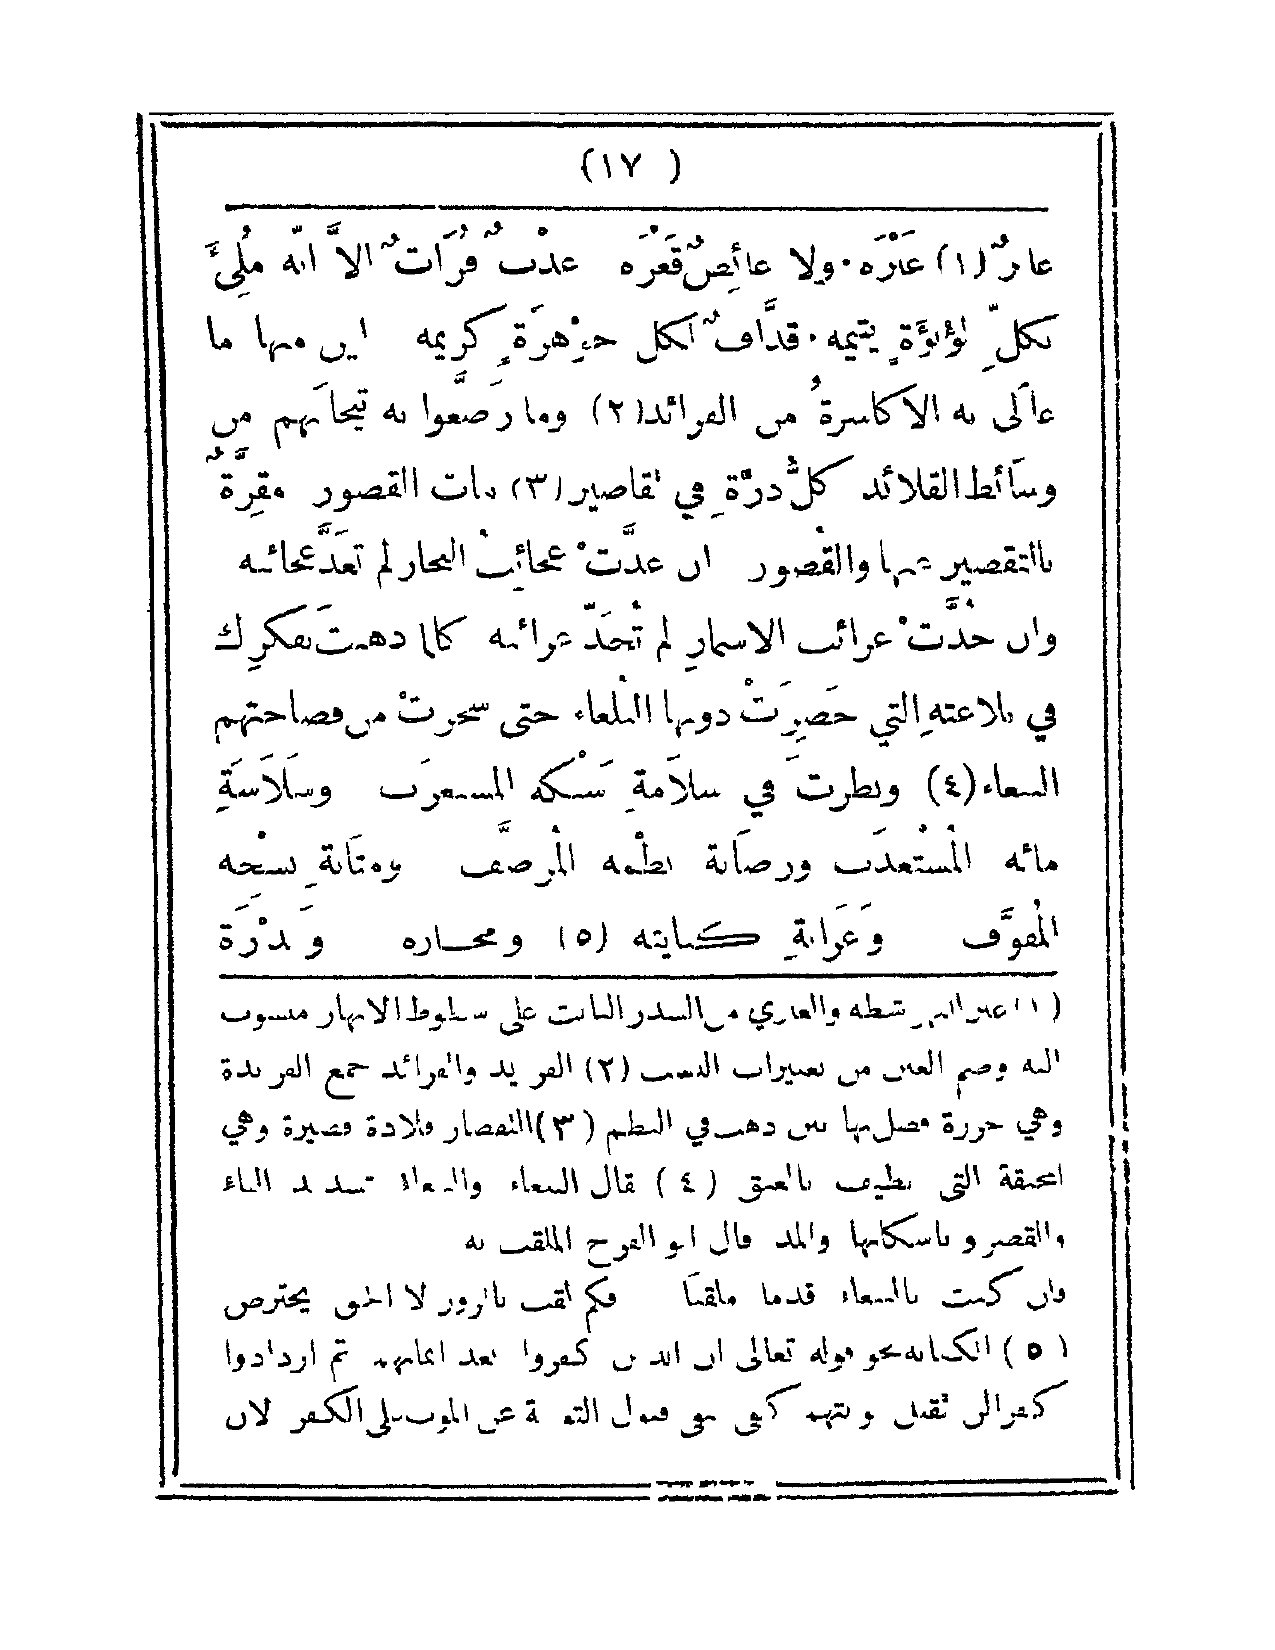 (١٧ )
عابرٌ (١) عَبْرَه . ولا غائصٌ قَعْرَه عذْبٌ فُرَاتٌ الاَّ انَّه مُلِئَ
بكلِّ لؤلؤَةٍ يتيمه . قذَّافٌ لكل جوْهَرَةٍ كَريمه اين منها ما
غالَى به الاكاسرةُ من الفرائد (٢) وما رَصَّعوا به تيجانَهم من
وسَائط القلائد كلُّ درَّةٍ في تقاصير (٣) بنات القصور مقِرَّةٌ
بالتقصير عنها والقُصور ان عدَّتْ عجائبُ البحار لم تُعَدَّ عجائبه
وان حُدَّتْ غرائب الاسمارِ لم تُحَدَّ غرائبه كلما ذهبتَ بفكرِك
في بلاغته التي حَصِرَتْ دونها البُلغاء حتى سخرتْ من فصاحتهم
الببغاء (٤) ونظرتَ في سلاَمةِ سَبْكه المستغرَب وسَلاَسَةِ
مائه المُسْتعذَب ورصَانة نظْمه المُرصَّف ومتَانةِ نسْجه
المُفوَّف وَغَرَابةِ كنايته (٥) ومجازه وَندْرَة
(١) عبر النهر شطه والعبري من السدر النابت على شطوط الانهار منسوب
اليه وضم العين من تغييرات النسب (٢) الفريد والفرائد جمع الفريدة
وهي خرزة فصل بها بين ذهب في النظم (٣) التقصار قلادة قصيرة وهي
المخنقة التي تطيف بالعنق (٤) يقال الببغاء والببغا بتشديد الباء
والقصر و باسكانها والمد قال ابو الفرج الملقب به
وان كنت بالببغاء قدما ملقبًا فكم لقب بالزور لا الحق يخترص
(٥) الكناية نحو قوله تعالى ان الذين كفروا بعد ايمانهم ثم ازدادوا
كفرا لن تقبل توبتهم كنى بنفي قبول التوبة عن الموت على الكفر لان